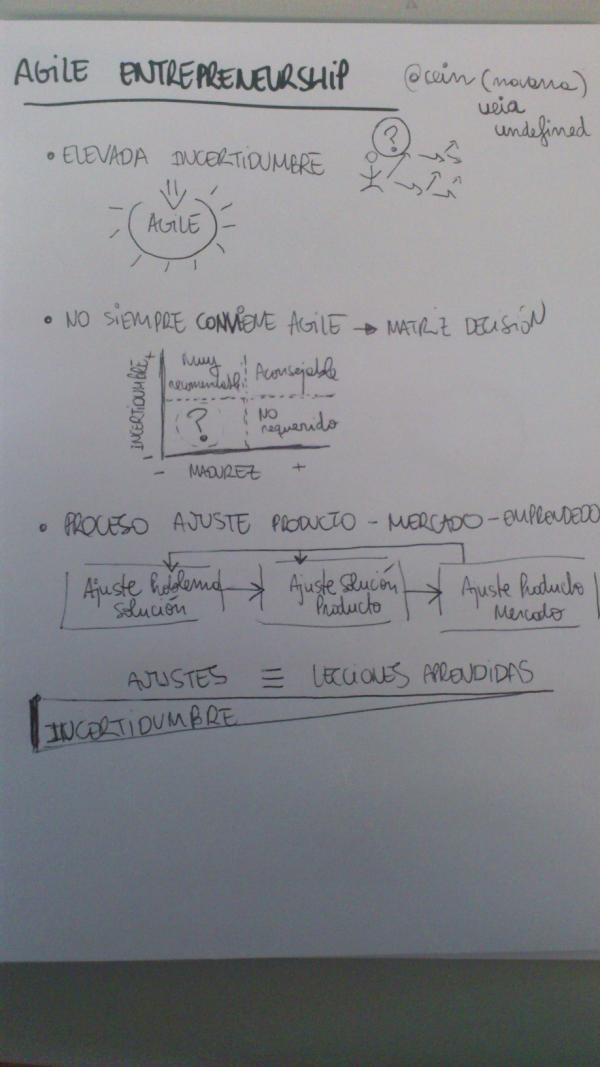 AGILE ENTREPRENEURSHIP
@cein (navarra)
veia
undefined
• ELEVADA INCERTIDUMBRE
?
AGILE
• NO SIEMPRE CONVIENE AGILE → MATRIZ DECISIÓN
INCERTIDUMBRE
+
-
Muy
recomendable
Aconsejable
?
No
requerido
- MADUREZ +
• PROCESO AJUSTE PRODUCTO - MERCADO - EMPRENDEDO
Ajuste Problema
Solución
Ajuste Solución
Producto
Ajuste Producto
Mercado
AJUSTES ≡ LECCIONES APRENDIDAS
INCERTIDUMBRE